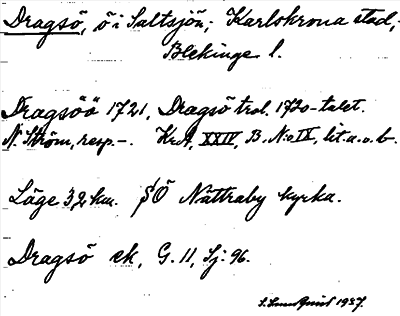 Dragsö, ö i Saltsjön, Karlskrona stad,
Blekinge l.
Dragsöö 1721, Dragsö trol. 1720-talet.
N. Ström, resp. -. KrA, XXIV, B. N:o IX, lit. a. o. b.
Läge 3,2 km. SÖ Nättraby kyrka.
Dragsö ek, G. 11, Sj: 96.
S. Lundquist 1937.